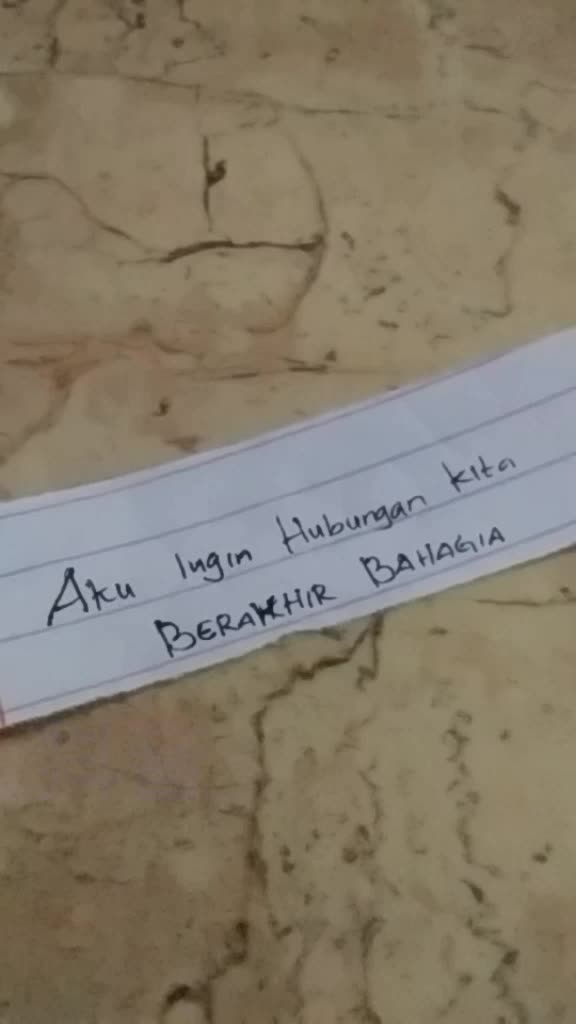 Aku Ingin Hubungan Kita
BERAKHIR BAHAGIA